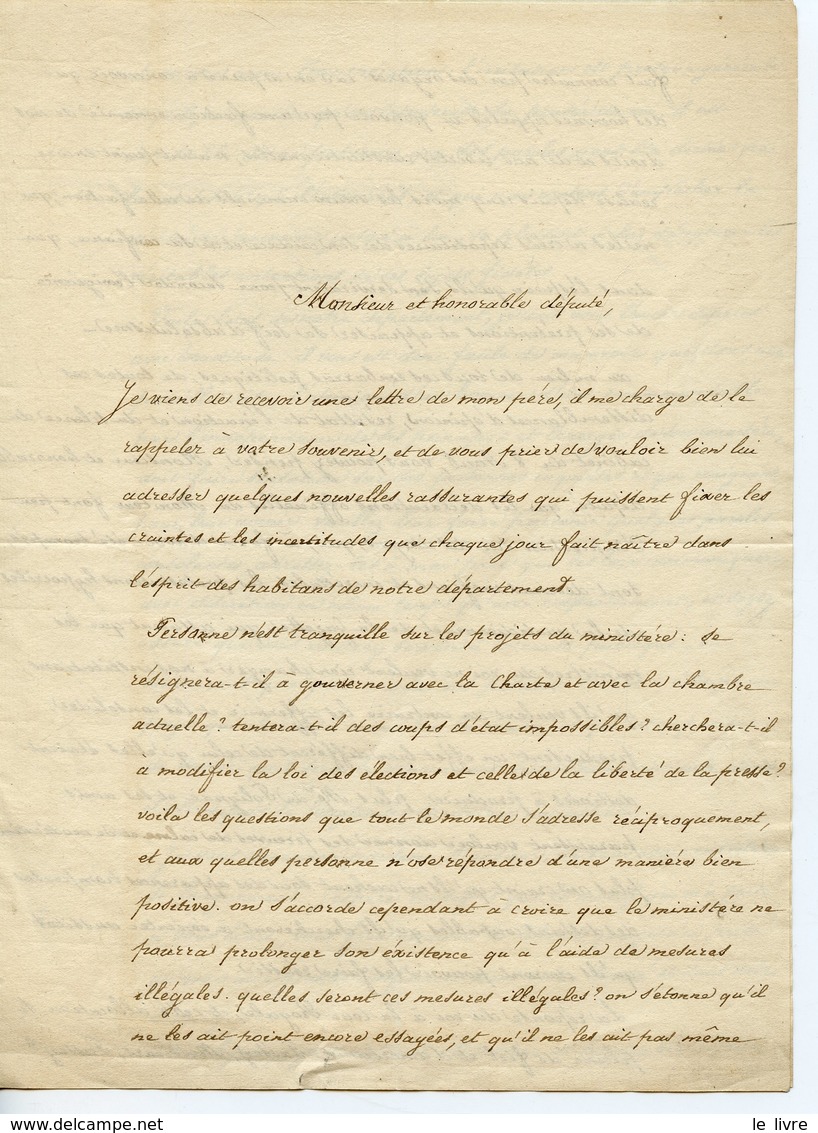 Monsieur et honorable député,
Je viens de recevoir une lettre de mon pére, il me charge de le
rappeler à votre souvenir, et de vous prier de vouloir bien lui
adresser quelques nouvelles rassurantes qui puissent fixer les
craintes et les incertitudes que chaque jour fait naître dans
l'ésprit des habitans de notre département.
Personne n'est tranquille sur les projets du ministére : se
résignera-t-il à gouverner avec la Charte et avec la chambre
actuelle? tentera-t-il des coups d'état impossibles? cherchera-t-il
à modifier la loi des élections et celle de la liberté de la presse?
voila les questions que tout le monde s'adresse réciproquement,
et aux quelles personne n'ose répondre d'une maniére bien
positive. on s'accorde cependant à croire que le ministére ne
pourra prolonger son éxistence qu'à l'aide de mesures
illégales. quelles seront ces mesures illégales? on s'étonne qu'il
ne les ait point encore essayées, et qu'il ne les ait pas même
delcampe.net
le livre